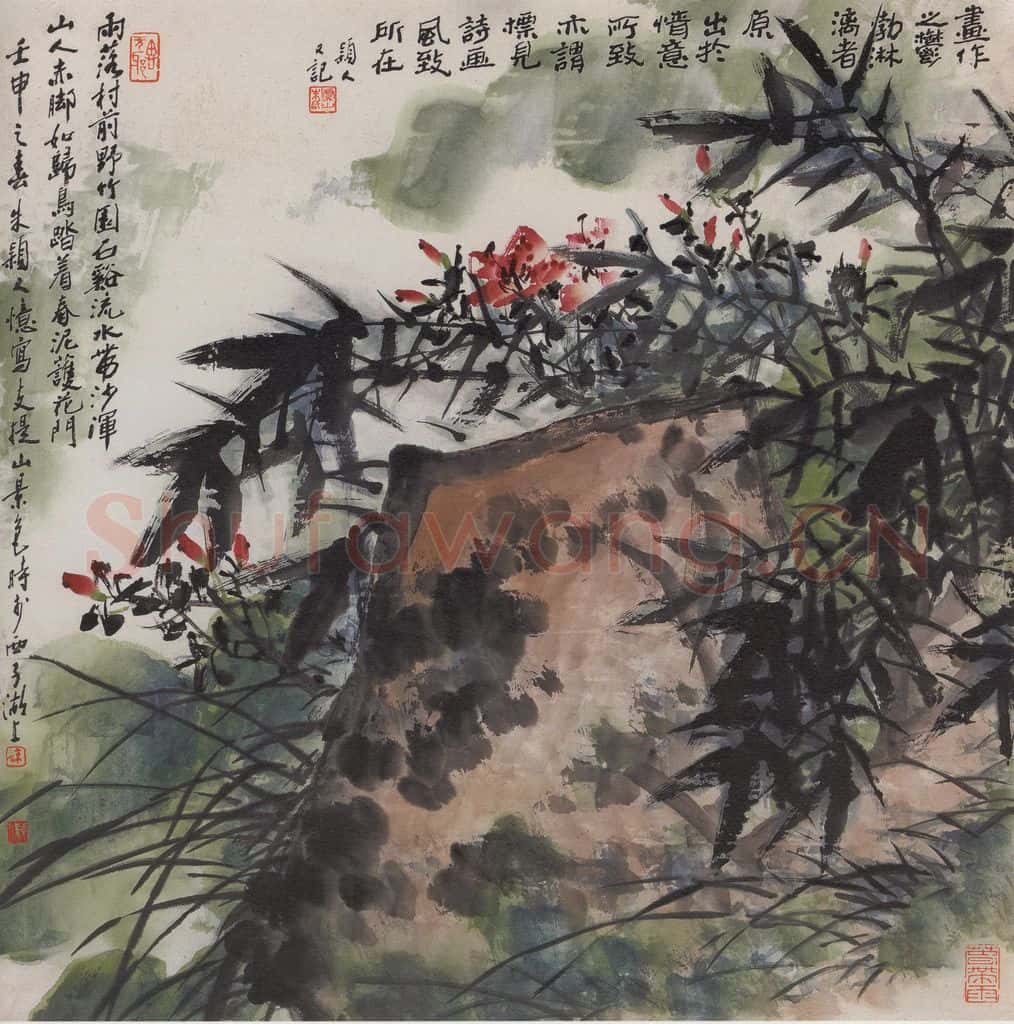 畫作
之鬱
勃淋
漓者
原
出於
惜意
所致
亦謂
標見
詩画
風致
所在
穎人
又記
雨落村前野竹園石谿流水帶沙渾
山人赤脚如歸鳥踏着春泥護花門
壬申之春朱穎人憶寫支提山景色時於西子湖上
Shufawang.CN